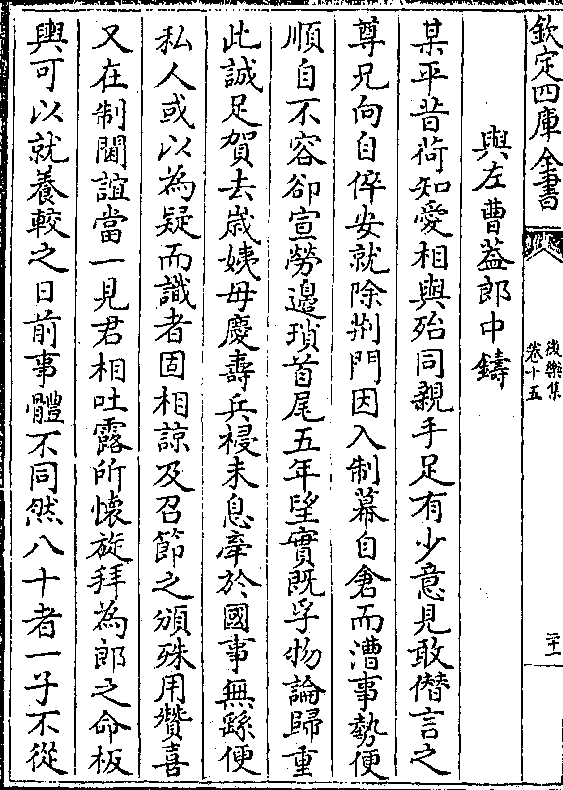 欽定四庫全書
後樂集
卷十五
二十一
與左曹蓋郎中鑄
某平昔荷知愛相與殆同親手足有少意見敢僭言之
尊兄向自倅安就除荆門因入制幕自倉而漕事勢便
順自不容卻宣勞邊瑣首尾五年望實既孚物論歸重
此誠足賀去歲姨母慶壽兵祲未息牽於國事無繇便
私人或以為疑而識者固相諒及召節之頒殊用欑喜
又在制閫誼當一見君相吐露所懷旋拜為郎之命板
輿可以就養較之日前事體不同然八十者一子不從